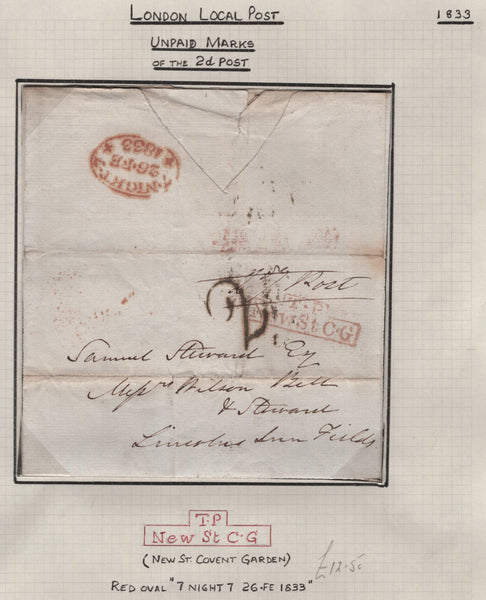 LONDON LOCAL POST
1833
UNPAID MARKS
OF THE 2d POST
7·NIGHT·7
26·FE
1833
Post
2
T·P
New·St C·G
Samuel Steward Esq
Messrs Wilson Bell
& Steward
Lincolns Inn Fields
T·P
New St C·G
(NEW ST. COVENT GARDEN)
£12·50
RED OVAL "7 NIGHT 7 26·FE 1833"